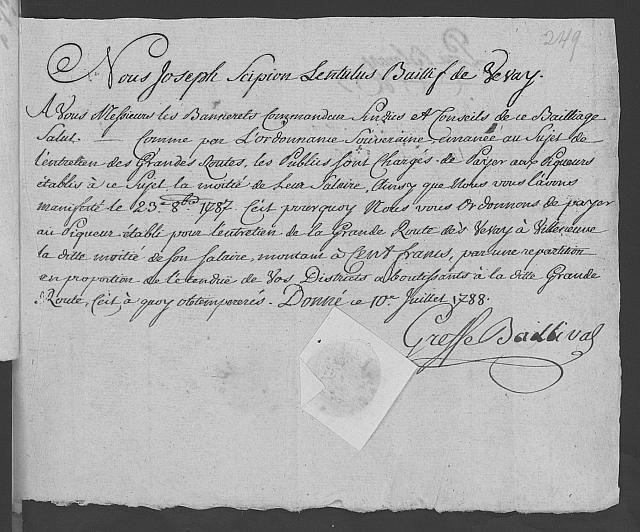 249
Nous Joseph Scipion Lentulus Baillif de Vevay.
A Vous Messieurs les Bannerets Commandeur Sindics et Conseils de ce Bailliage
Salut. — Comme par L'ordonnance Souveraine, émanée au Sujet de
l'entretien des Grandes Routes, les Publics sont Chargés de Payer aux Piqueurs
établis à ce Sujet la moitié de Leur Salaire, Ainsy que Nous vous l'avons
manifesté le 23e 8bre 1787. C'est pourquoy Nous vous Ordonnons de payer
au Piqueur établi pour l'entretien de la Grande Route des Vevay à Villeneuve
la ditte moitié de son salaire, montant à Cent francs, par une repartition
en proportion de l'etendue de Vos Districts aboutissants à la ditte Grande
Route, C'est à quoy obtempererés. Donné ce 10e Juillet 1788.
Greffe Baillival